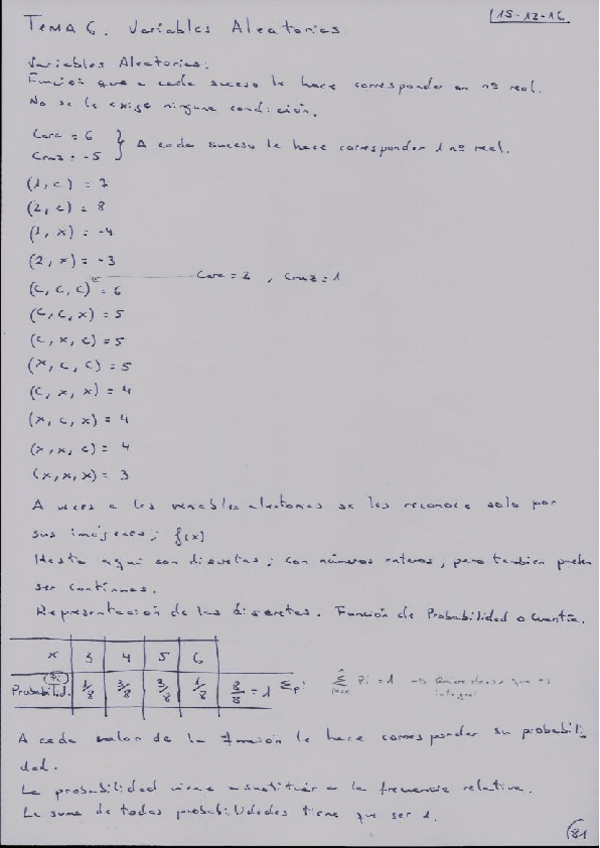 15-12-16
TEMA 6. Variables Aleatorias
Variables Aleatorias.
Función que a cada suceso le hace corresponder un nº real.
No se le exige ninguna condición.
Cara = 6
Cruz = -5
} A cada suceso le hace corresponder 1 nº real.
(1, c) = 7
(2, c) = 8
(1, x) = -4
(2, x) = -3
Cara = 2 , Cruz = 1
(c, c, c) = 6
(c, c, x) = 5
(c, x, c) = 5
(x, c, c) = 5
(c, x, x) = 4
(x, c, x) = 4
(x, x, c) = 4
(x, x, x) = 3
A veces a las variables aleatorias se les reconoce solo por
sus imágenes; f(x)
Hasta aquí son discretas; con números enteros, pero también pueden
ser continuas.
Representación de las discretas. Función de Probabilidad o Cuantía.
x 3 4 5 6
(Pi) Probabilid. 1/8 3/8 3/8 1/8 8/8 = 1 Σpi Σ Pi = 1 → Quiere decir que es
integral
A cada valor de la función le hace corresponder su probabili-
dad.
La probabilidad viene a sustituir a la frecuencia relativa.
La suma de todas probabilidades tiene que ser 1.
81